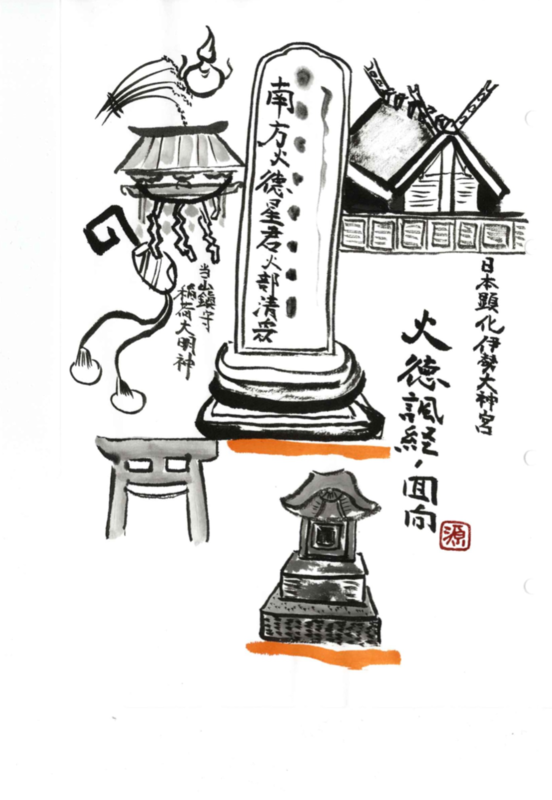 日本顕化伊勢大神宮
火徳諷経・回向
源
南方火德星君火部清衆
当山鎮守
稲荷大明神